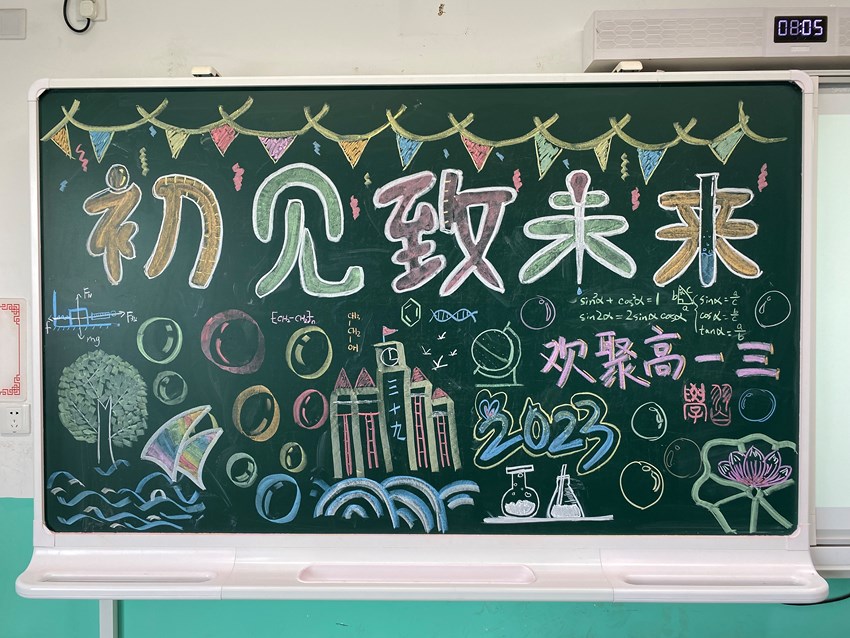 08:05
初见致未来
F_N
F
F_拉
mg
[CH₂-CH₂]n
CH₃
CH₂
OH
sin²α + cos²α = 1
sin2α = 2sinα cosα
c
b
a
sinα = a/c
cosα = b/c
tanα = a/b
欢聚高一三
學習
三十九
2023